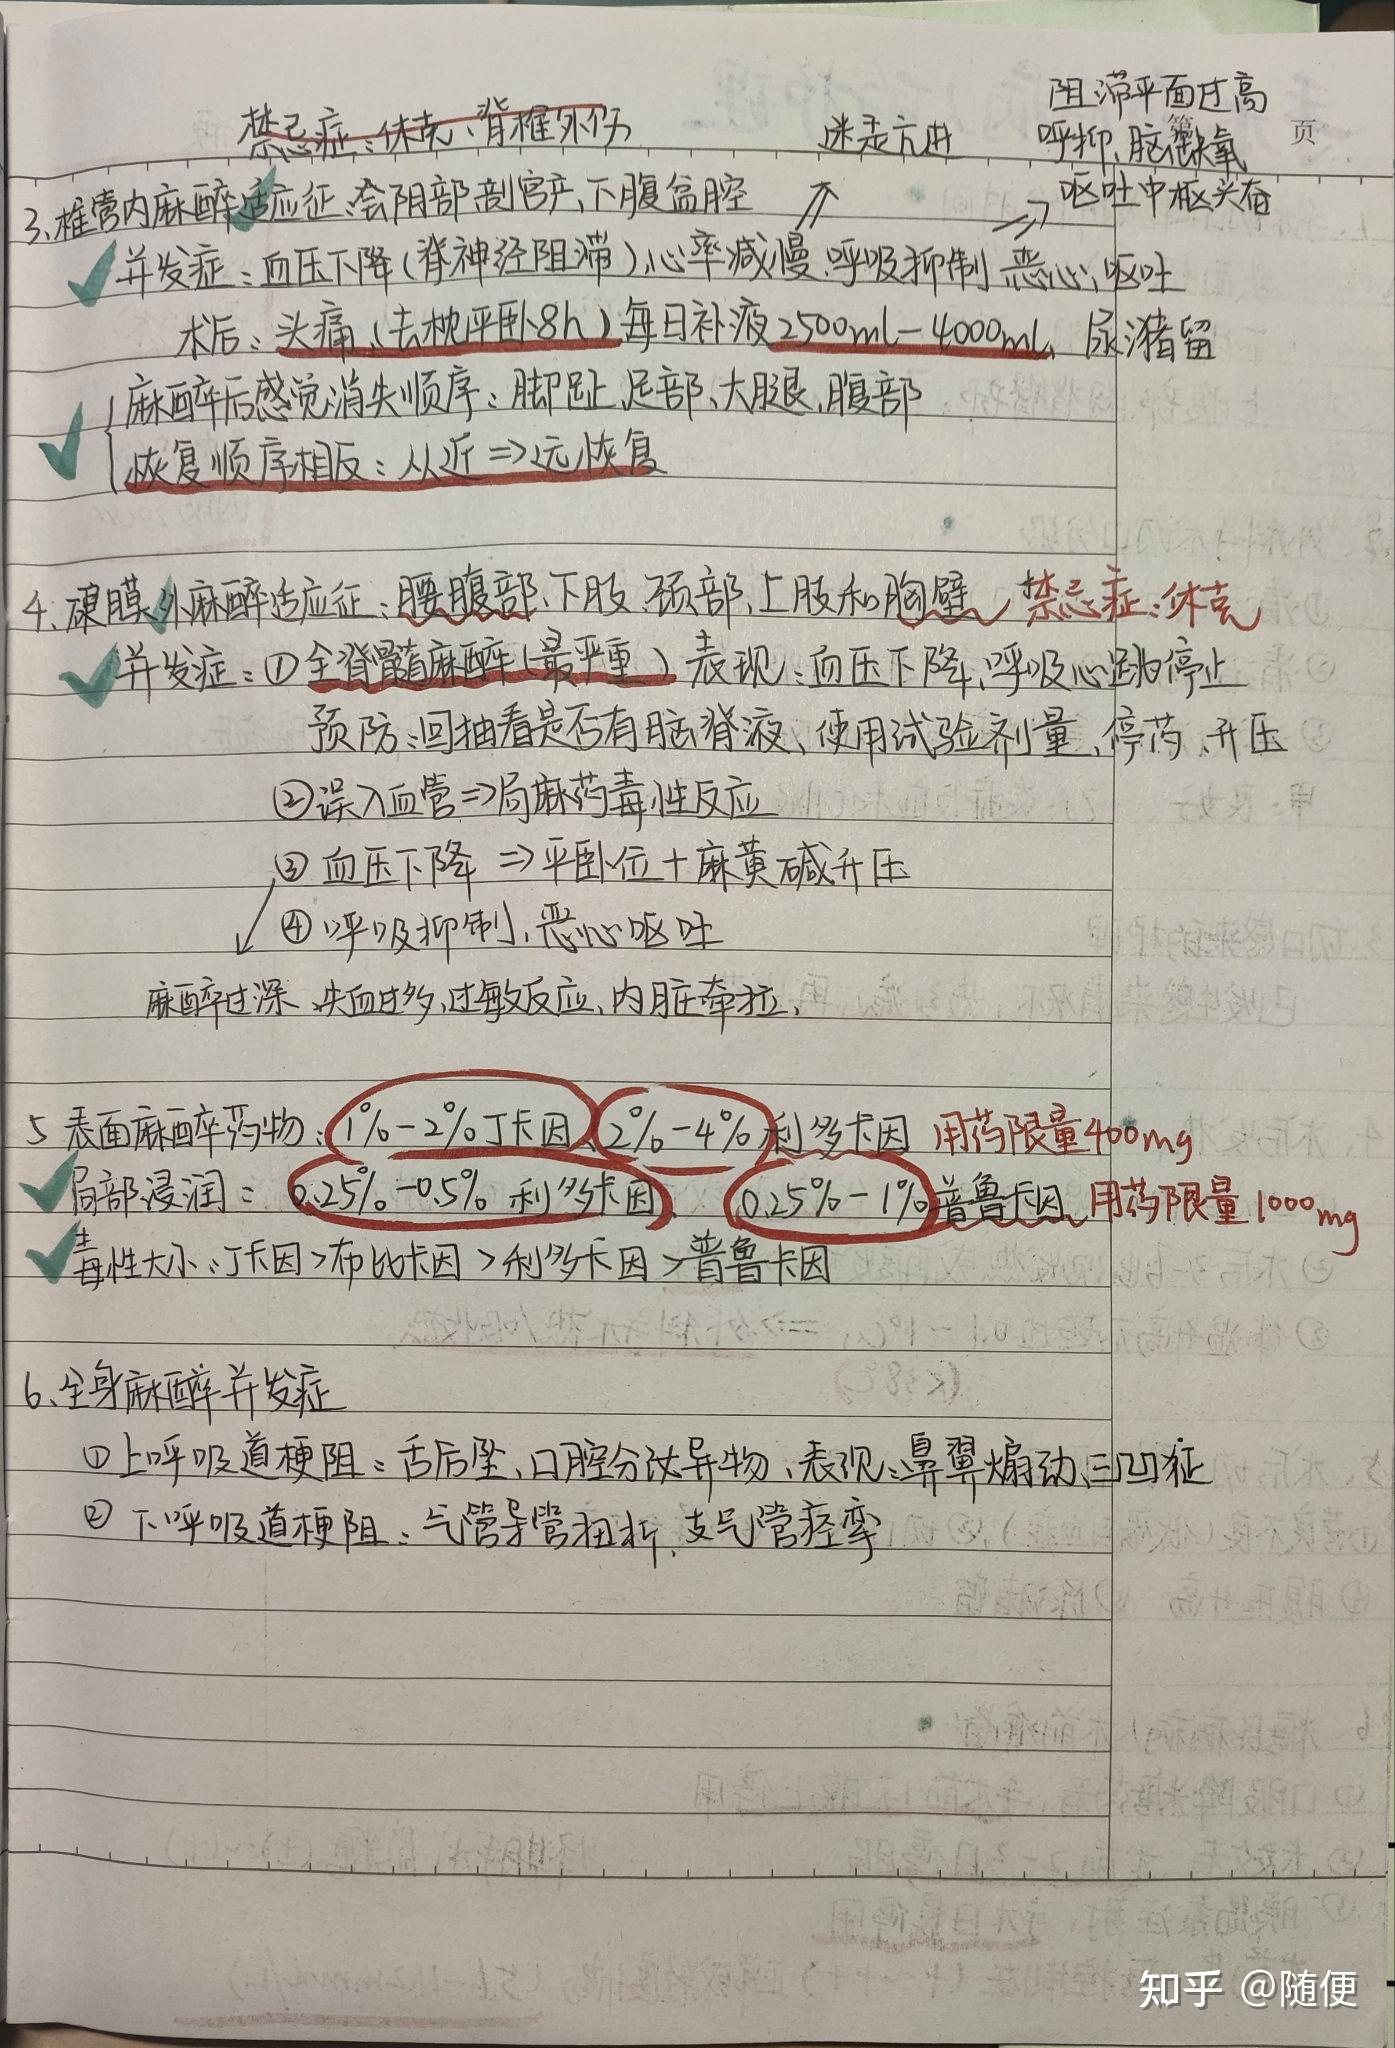 阻滞平面过高
禁忌症:休克、脊椎外伤 迷走亢进 呼抑、脑缺氧 第 页
呕吐中枢兴奋
3、椎管内麻醉适应征:会阴部剖宫产、下腹盆腔
并发症:血压下降(脊神经阻滞)、心率减慢、呼吸抑制 恶心、呕吐
术后:头痛、(去枕平卧8h)每日补液2500ml-4000ml、尿潴留
麻醉后感觉消失顺序:脚趾、足部、大腿、腹部
恢复顺序相反:从近⇒远恢复
4、硬膜外麻醉适应征:腰腹部、下肢、颈部、上肢和胸壁 禁忌症:休克
并发症:①全脊髓麻醉(最严重)表现:血压下降、呼吸心跳停止
预防:回抽看是否有脑脊液、使用试验剂量、停药、升压
②误入血管⇒局麻药毒性反应
③血压下降⇒平卧位+麻黄碱升压
④呼吸抑制、恶心呕吐
麻醉过深、失血过多、过敏反应、内脏牵拉、
5 表面麻醉药物:1%-2%丁卡因、2%-4%利多卡因 用药限量400mg
局部浸润:0.25%-0.5%利多卡因、0.25%-1%普鲁卡因 用药限量1000mg
毒性大小:丁卡因>布比卡因>利多卡因>普鲁卡因
6、全身麻醉并发症
①上呼吸道梗阻:舌后坠、口腔分泌异物、表现:鼻翼煽动、三凹征
②下呼吸道梗阻:气管导管扭折、支气管痉挛
知乎 @随便